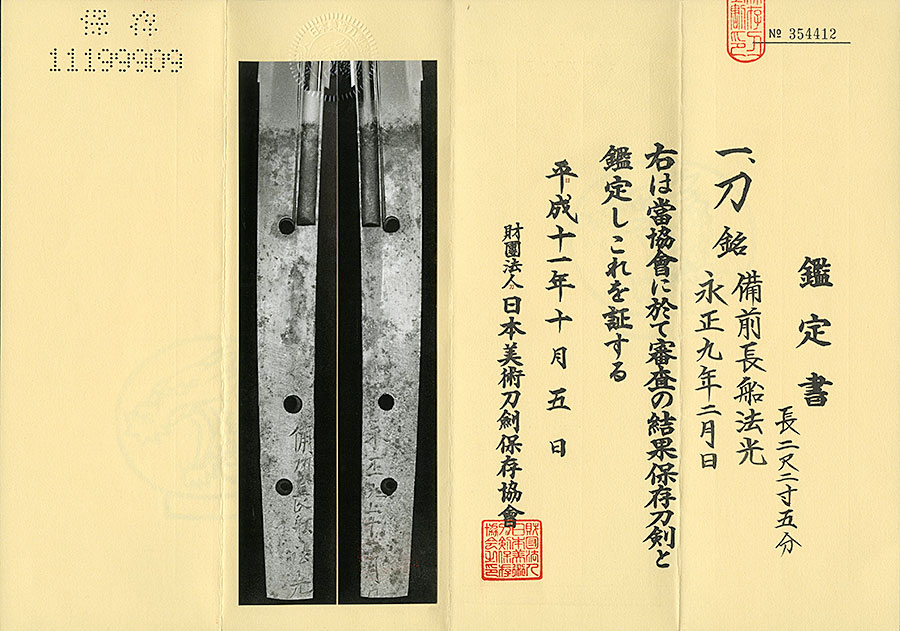 鑑定書
長二尺二寸五分
一、刀 銘 備前長船法光
永正九年二月日
右は當協會に於て審査の結果保存刀剣と
鑑定しこれを証する
平成十一年十月五日
財團法人日本美術刀剣保存協會
№ 354412
保存
11199909
備前國長船法光